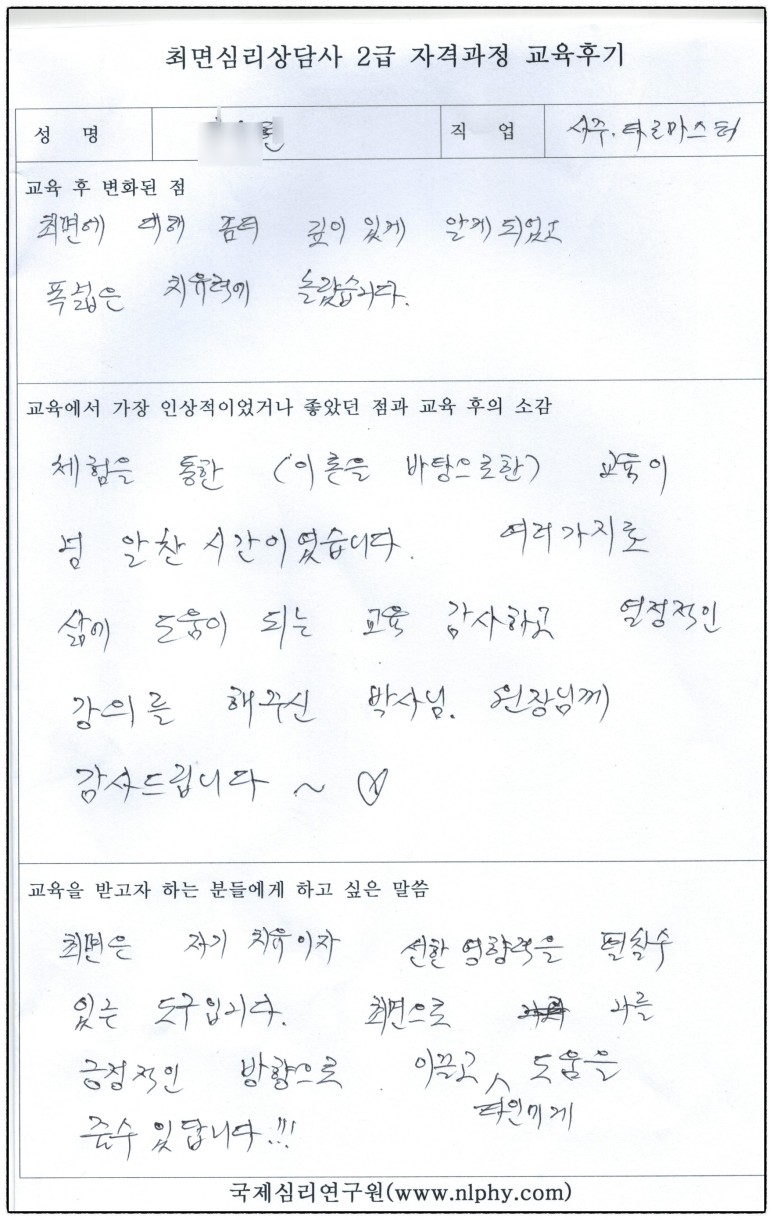 최면심리상담사 2급 자격과정 교육후기
성 명
직 업 사주.타로마스터
교육 후 변화된 점
최면에 대해 좀더 깊이 있게 알게 되었고
폭넓은 치유력에 놀랐습니다.
교육에서 가장 인상적이었거나 좋았던 점과 교육 후의 소감
체험을 통한 (이론을 바탕으로한) 교육이
넘 알찬 시간이였습니다. 여러가지로
삶에 도움이 되는 교육 감사하고 열정적인
강의를 해주신 박사님. 원장님께
감사드립니다 ~ ♡
교육을 받고자 하는 분들에게 하고 싶은 말씀
최면은 자기 치유이자 선한 영향력을 펼칠수
있는 도구입니다. 최면으로 나를
긍정적인 방향으로 이끌고 타인에게 도움을
줄수 있답니다!!!
국제심리연구원(www.nlphy.com)